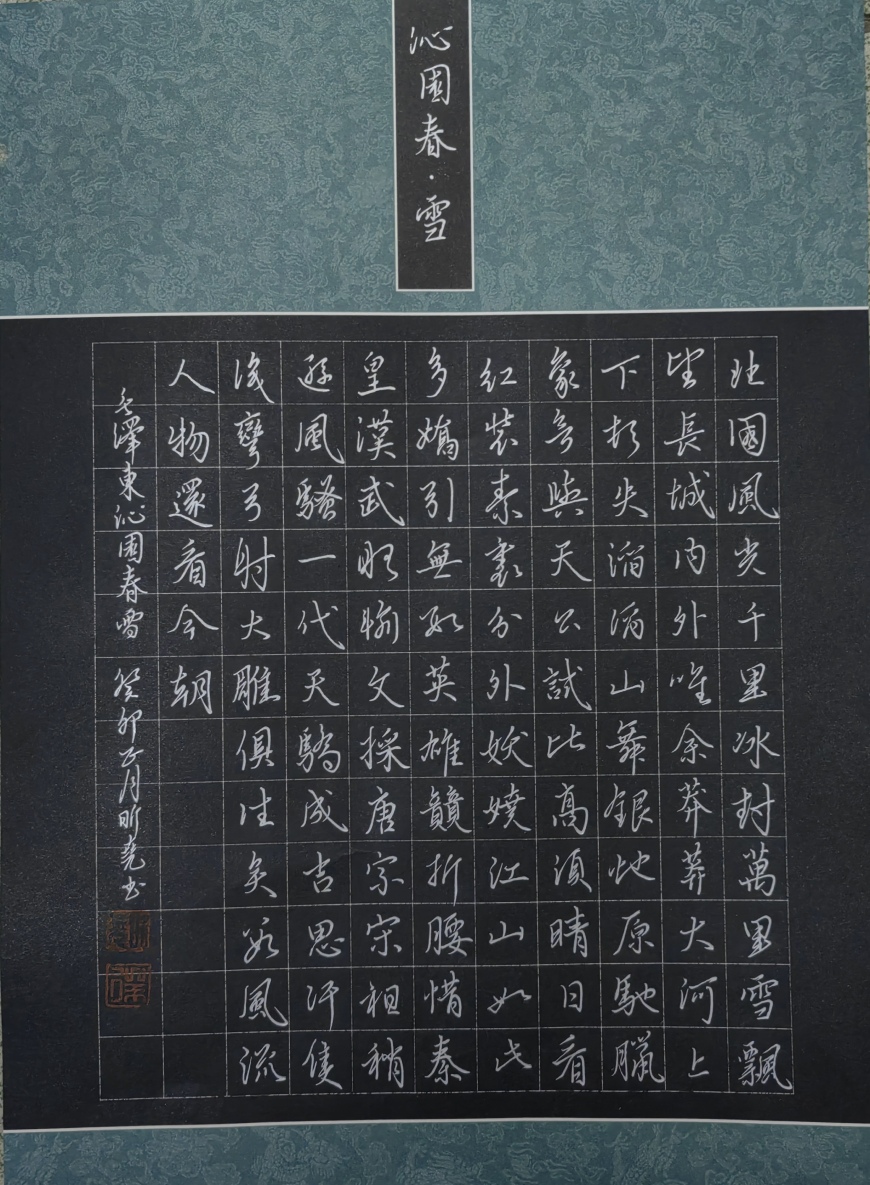 沁園春·雪
北國風光千里冰封萬里雪飄
望長城内外唯余莽莽大河上
下頓失滔滔山舞銀蛇原馳臘
象欲與天公試比高須晴日看
紅裝素裹分外妖嬈江山如此
多嬌引無數英雄競折腰惜秦
皇漢武略輸文採唐宗宋祖稍
遜風騷一代天驕成吉思汗隻
識彎弓射大雕俱往矣數風流
人物還看今朝
毛澤東沁園春雪 癸卯正月昕堯书